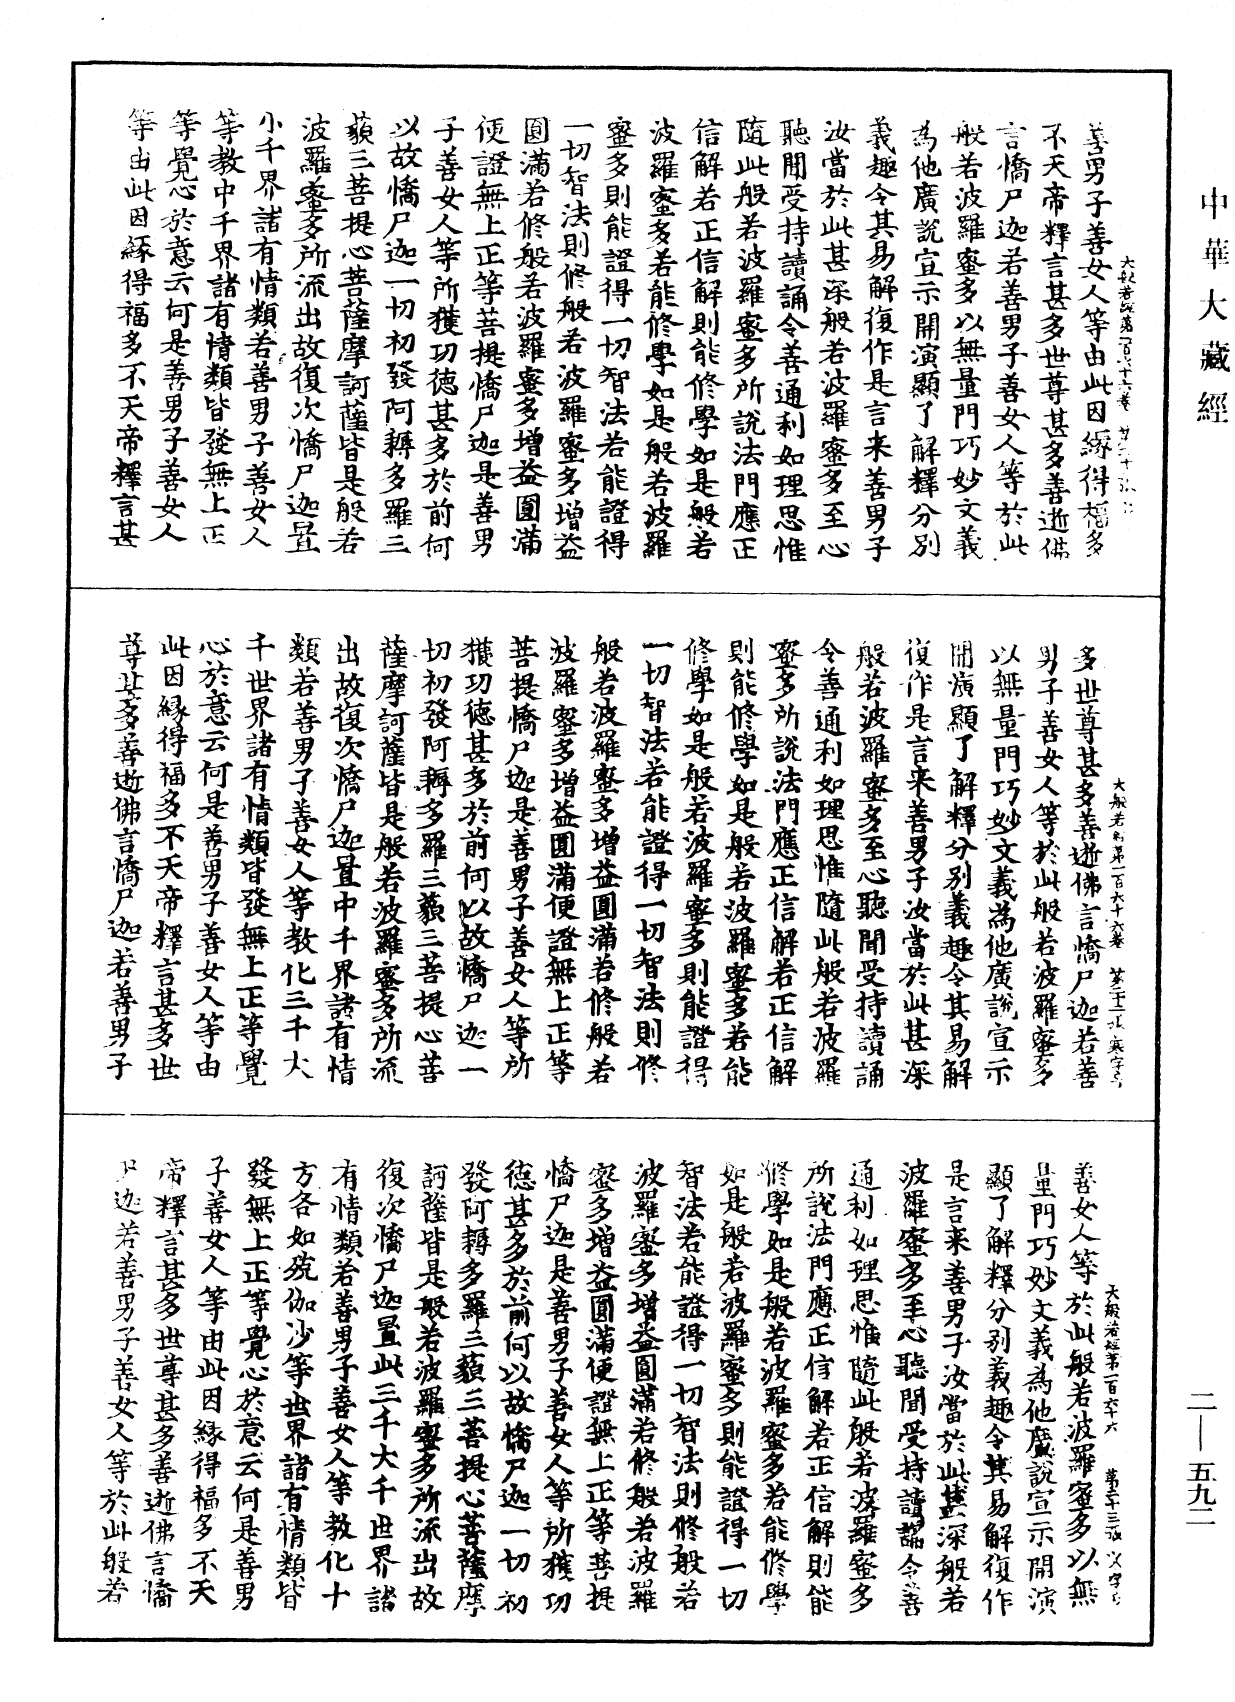 中華大藏經
善男子善女人等由此因緣得福多
不天帝釋言甚多世尊甚多善逝佛
言憍尸迦若善男子善女人等於此
般若波羅蜜多以無量門巧妙文義
為他廣說宣示開演顯了解釋分別
義趣令其易解復作是言来善男子
汝當於此甚深般若波羅蜜多至心
聽聞受持讀誦令善通利如理思惟
隨此般若波羅蜜多所說法門應正
信解若正信解則能修學如是般若
波羅蜜多若能修學如是般若波羅
蜜多則能證得一切智法若能證得
一切智法則修般若波羅蜜多增益
圓滿若修般若波羅蜜多增益圓滿
便證無上正等菩提憍尸迦是善男
子善女人等所獲功德甚多於前何
以故憍尸迦一切初發阿耨多羅三
藐三菩提心菩薩摩訶薩皆是般若
波羅蜜多所流出故復次憍尸迦置
小千界諸有情類若善男子善女人
等教中千界諸有情類皆發無上正
等覺心於意云何是善男子善女人
等由此因緣得福多不天帝釋言甚
大般若經第一百六十六卷
多世尊甚多善逝佛言憍尸迦若善
男子善女人等於此般若波羅蜜多
以無量門巧妙文義為他廣說宣示
開演顯了解釋分別義趣令其易解
復作是言来善男子汝當於此甚深
般若波羅蜜多至心聽聞受持讀誦
令善通利如理思惟隨此般若波羅
蜜多所說法門應正信解若正信解
則能修學如是般若波羅蜜多若能
修學如是般若波羅蜜多則能證得
一切智法若能證得一切智法則修
般若波羅蜜多增益圓滿若修般若
波羅蜜多增益圓滿便證無上正等
菩提憍尸迦是善男子善女人等所
獲功德甚多於前何以故憍尸迦一
切初發阿耨多羅三藐三菩提心菩
薩摩訶薩皆是般若波羅蜜多所流
出故復次憍尸迦置中千界諸有情
類若善男子善女人等教化三千大
千世界諸有情類皆發無上正等覺
心於意云何是善男子善女人等由
此因緣得福多不天帝釋言甚多世
尊甚多善逝佛言憍尸迦若善男子
大般若經第一百六十六卷 第二十二張 寒字号
善女人等於此般若波羅蜜多以無
量門巧妙文義為他廣說宣示開演
顯了解釋分別義趣令其易解復作
是言来善男子汝當於此甚深般若
波羅蜜多至心聽聞受持讀誦令善
通利如理思惟隨此般若波羅蜜多
所說法門應正信解若正信解則能
修學如是般若波羅蜜多若能修學
如是般若波羅蜜多則能證得一切
智法若能證得一切智法則修般若
波羅蜜多增益圓滿若修般若波羅
蜜多增益圓滿便證無上正等菩提
憍尸迦是善男子善女人等所獲功
德甚多於前何以故憍尸迦一切初
發阿耨多羅三藐三菩提心菩薩摩
訶薩皆是般若波羅蜜多所流出故
復次憍尸迦置此三千大千世界諸
有情類若善男子善女人等教化十
方各如殑伽沙等世界諸有情類皆
發無上正等覺心於意云何是善男
子善女人等由此因緣得福多不天
帝釋言甚多世尊甚多善逝佛言憍
尸迦若善男子善女人等於此般若
大般若經第一百六十六 第二十三張
二—五九二